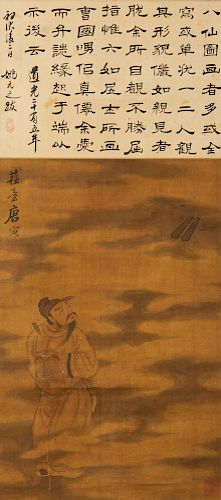 八仙圖画者多矣或全
寫或單狀一二人觀
其形貌儼如親見者
脫余所目觀不勝屈
指惟六如居士所画
曹國舅侶真僊余處
而弁識緣起于端以
示後云 道光二十有五年
初伏後二日 姚元之跋
蘇臺唐寅